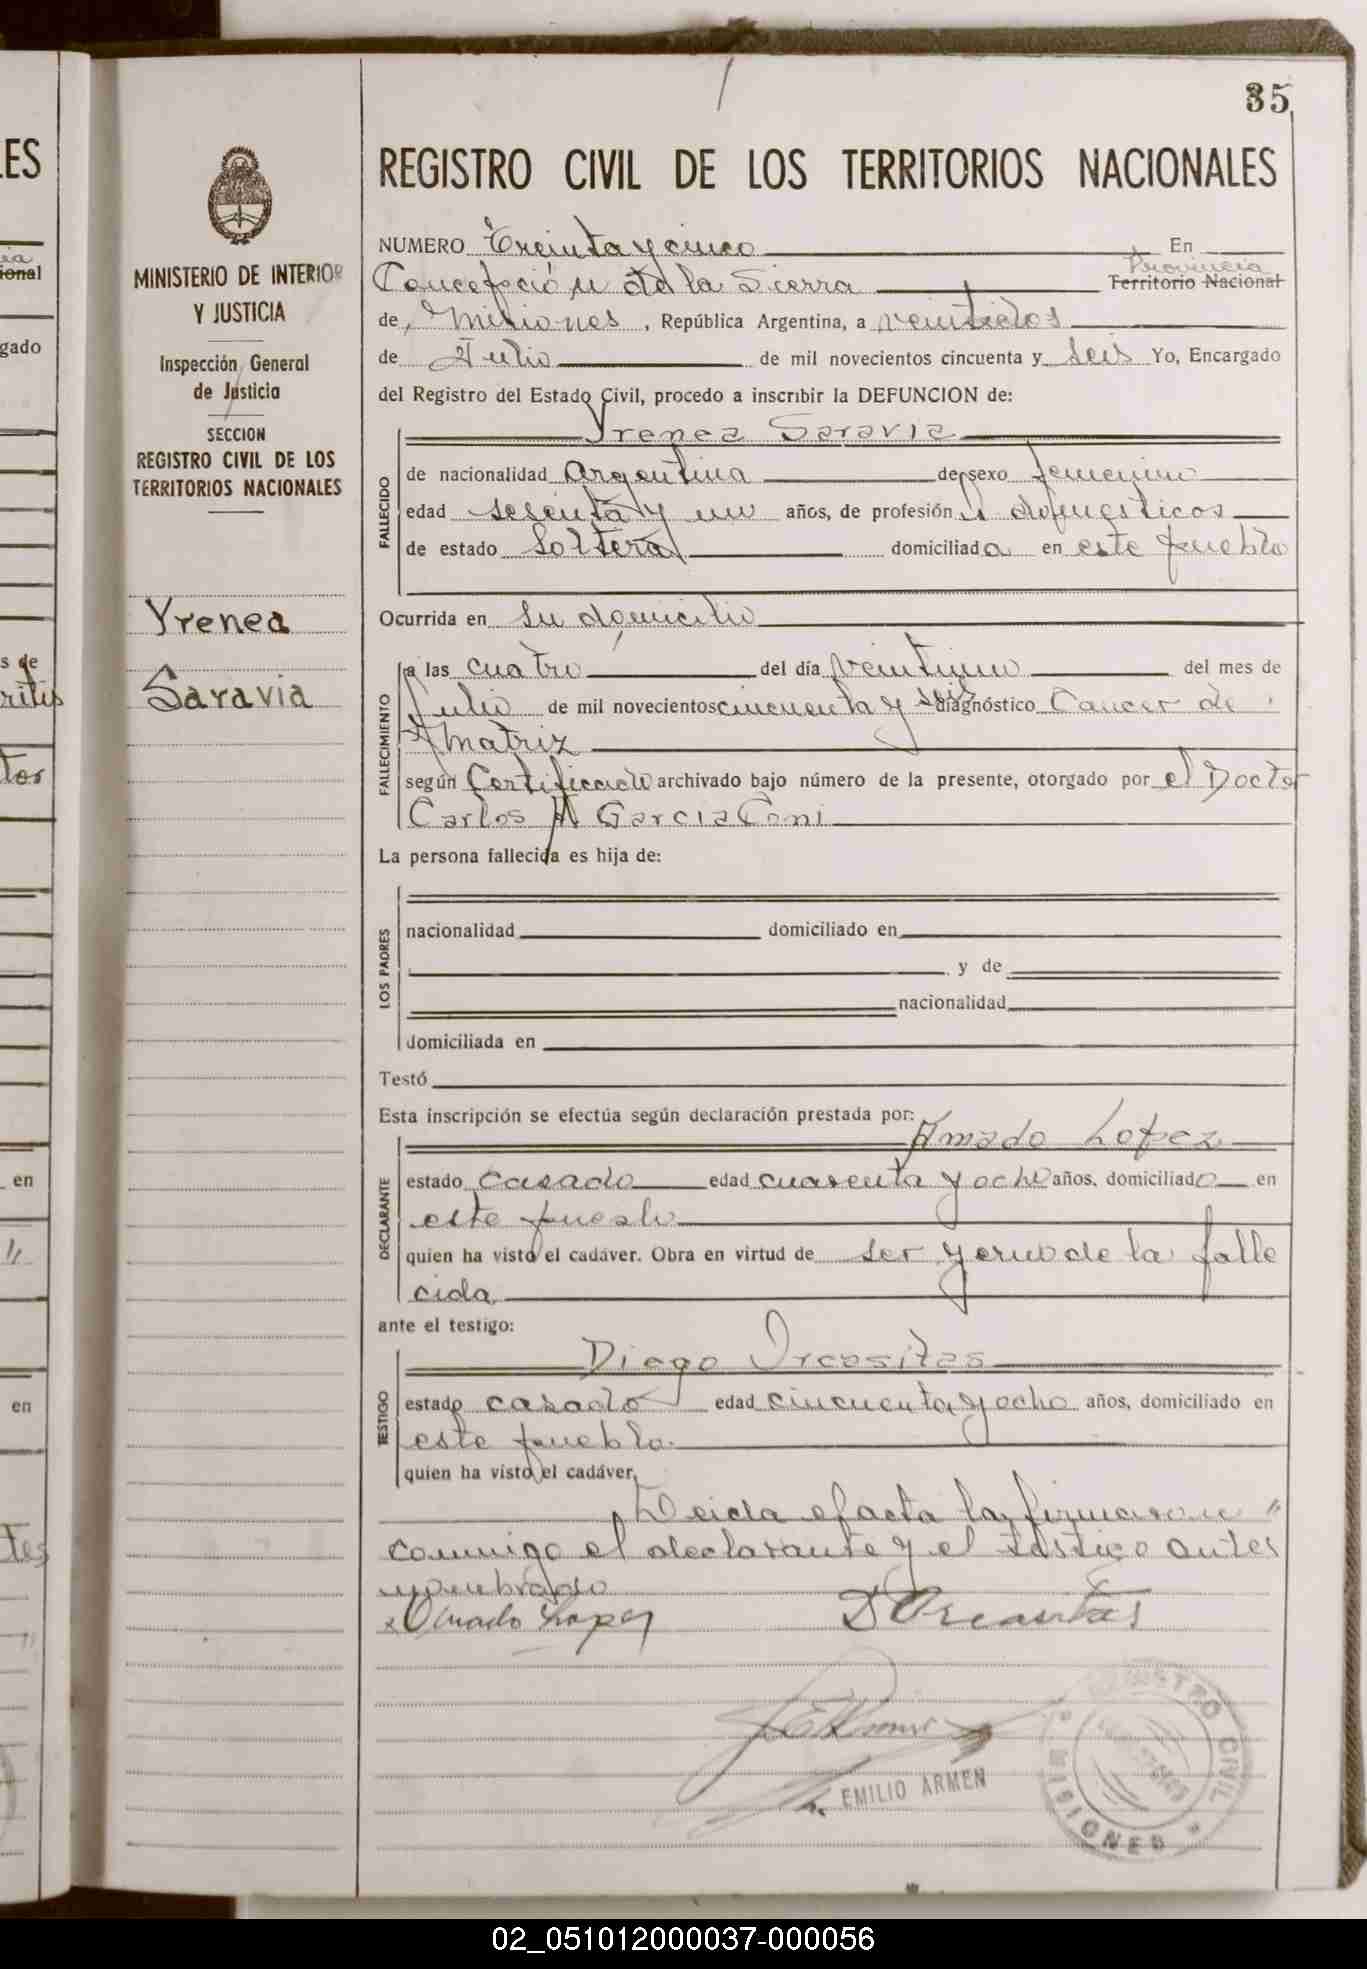 35
REGISTRO CIVIL DE LOS TERRITORIOS NACIONALES
MINISTERIO DE INTERIOR
Y JUSTICIA
Inspección General
de Justicia
SECCION
REGISTRO CIVIL DE LOS
TERRITORIOS NACIONALES
Yrenea
Saravia
NUMERO Treinta y cinco En
Provincia
Concepción de la Sierra Territorio Nacional
de Misiones, República Argentina, a veintidos
de Julio de mil novecientos cincuenta y seis Yo, Encargado
del Registro del Estado Civil, procedo a inscribir la DEFUNCION de:
Yrenea Saravia
FALLECIDO
de nacionalidad argentina de sexo femenino
edad sesenta y un años, de profesión domesticos
de estado Soltera domiciliada en este pueblo
Ocurrida en su domicilio
FALLECIMIENTO
a las cuatro del día veintiuno del mes de
Julio de mil novecientos cincuenta y seis diagnóstico Cancer de
Matriz
según Certificado archivado bajo número de la presente, otorgado por el Doctor
Carlos A Garcia Coni
La persona fallecida es hija de:
LOS PADRES
nacionalidad domiciliado en
y de
nacionalidad
domiciliada en
Testó
Esta inscripción se efectúa según declaración prestada por:
Amado Lopez
DECLARANTE
estado casado edad cuarenta y ocho años, domiciliado en
este pueblo
quien ha visto el cadáver. Obra en virtud de ser yerno de la falle
cida
ante el testigo:
Diego Orcositas
TESTIGO
estado casado edad cincuenta y ocho años, domiciliado en
este pueblo.
quien ha visto el cadáver,
Leida el acta la firmaron "
conmigo el declarante y el testigo antes
nombrado
Amado Lopez
EMILIO ARMEN
REGISTRO CIVIL
MISIONES
ES
ional
gado
s de
ritis
tor
en
en
tes
02_051012000037-000056